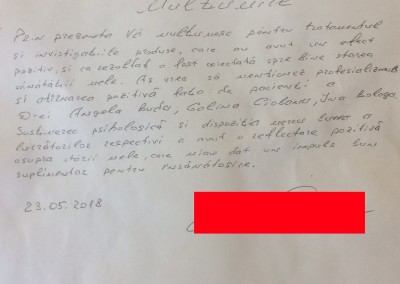 Mulțumire
Prin prezenta Vă mulțumesc pentru tratamentul
și investigațiile produse, care au avut un efect
pozitiv, și ca rezultat a fost corectată spre bine starea
sănătății mele. Aș vrea să menționez profesionalismul
și atitudinea pozitivă față de pacienți a
D-ei Angela Buda, Galina Ciobanu, Ina Bologa.
Susținerea psihologică și dispoziția mereu bună a
lucrătorilor respectivi a avut o reflectare pozitivă
asupra stării mele, care miau dat un impuls bun
suplimentar pentru însănătoșire.
23.05.2018